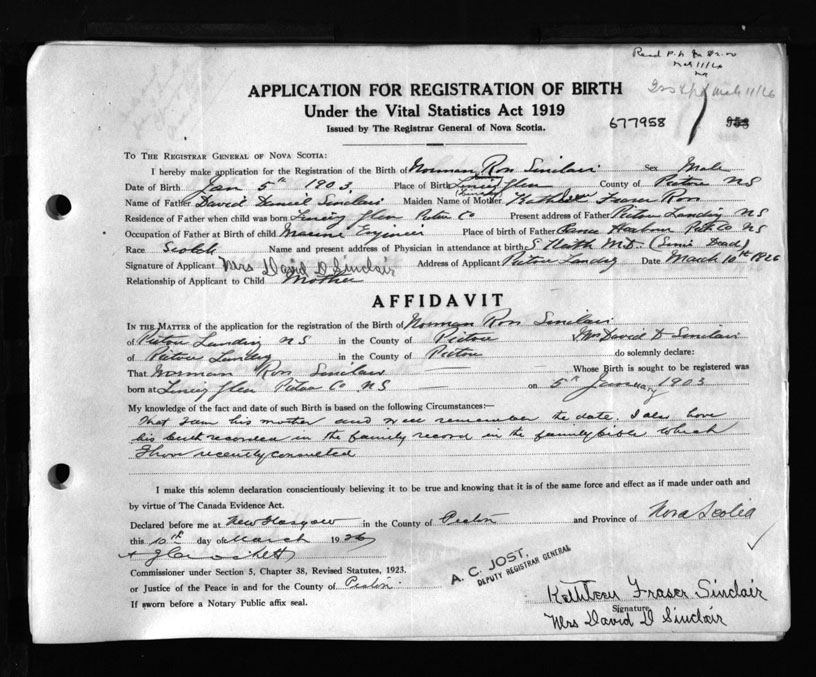 Mch 11/26
APPLICATION FOR REGISTRATION OF BIRTH
Under the Vital Statistics Act 1919
Issued by The Registrar General of Nova Scotia.
677958
TO THE REGISTRAR GENERAL OF NOVA SCOTIA:
I hereby make application for the Registration of the Birth of Norman Ross Sinclair Sex Male
Date of Birth Jan 5th 1903. Place of Birth Glen County of Pictou NS
Name of Father David Daniel Sinclair Maiden Name of Mother Fraser Ross
Residence of Father when child was born Glen Pictou Co Present address of Father Pictou Landing NS
Occupation of Father at Birth of child Marine Engineer Place of birth of Father Harbour NS
Race Scotch Name and present address of Physician in attendance at birth M.D. (Since Dead)
Signature of Applicant Mrs David D Sinclair Address of Applicant Pictou Landing Date March 10th 1926
Relationship of Applicant to Child Mother
AFFIDAVIT
IN THE MATTER of the application for the registration of the Birth of Norman Ross Sinclair
of Pictou Landing NS in the County of Pictou I, Mrs David D Sinclair
of Pictou Landing in the County of Pictou do solemnly declare:
That Norman Ross Sinclair Whose Birth is sought to be registered was
born at Glen Pictou Co NS on 5th January 1903
My knowledge of the fact and date of such Birth is based on the following Circumstances:—
That I am his mother and well remember the date. I also have
his birth recorded in the family record in the family bible which
I have recently consulted
I make this solemn declaration conscientiously believing it to be true and knowing that it is of the same force and effect as if made under oath and
by virtue of The Canada Evidence Act.
Declared before me at New Glasgow in the County of Pictou and Province of Nova Scotia
this 10th day of March 1926
Commissioner under Section 5, Chapter 38, Revised Statutes, 1923.
or Justice of the Peace in and for the County of Pictou
If sworn before a Notary Public affix seal.
A. C. JOST,
DEPUTY REGISTRAR GENERAL
Kathleen Fraser Sinclair
Signature
Mrs David D Sinclair